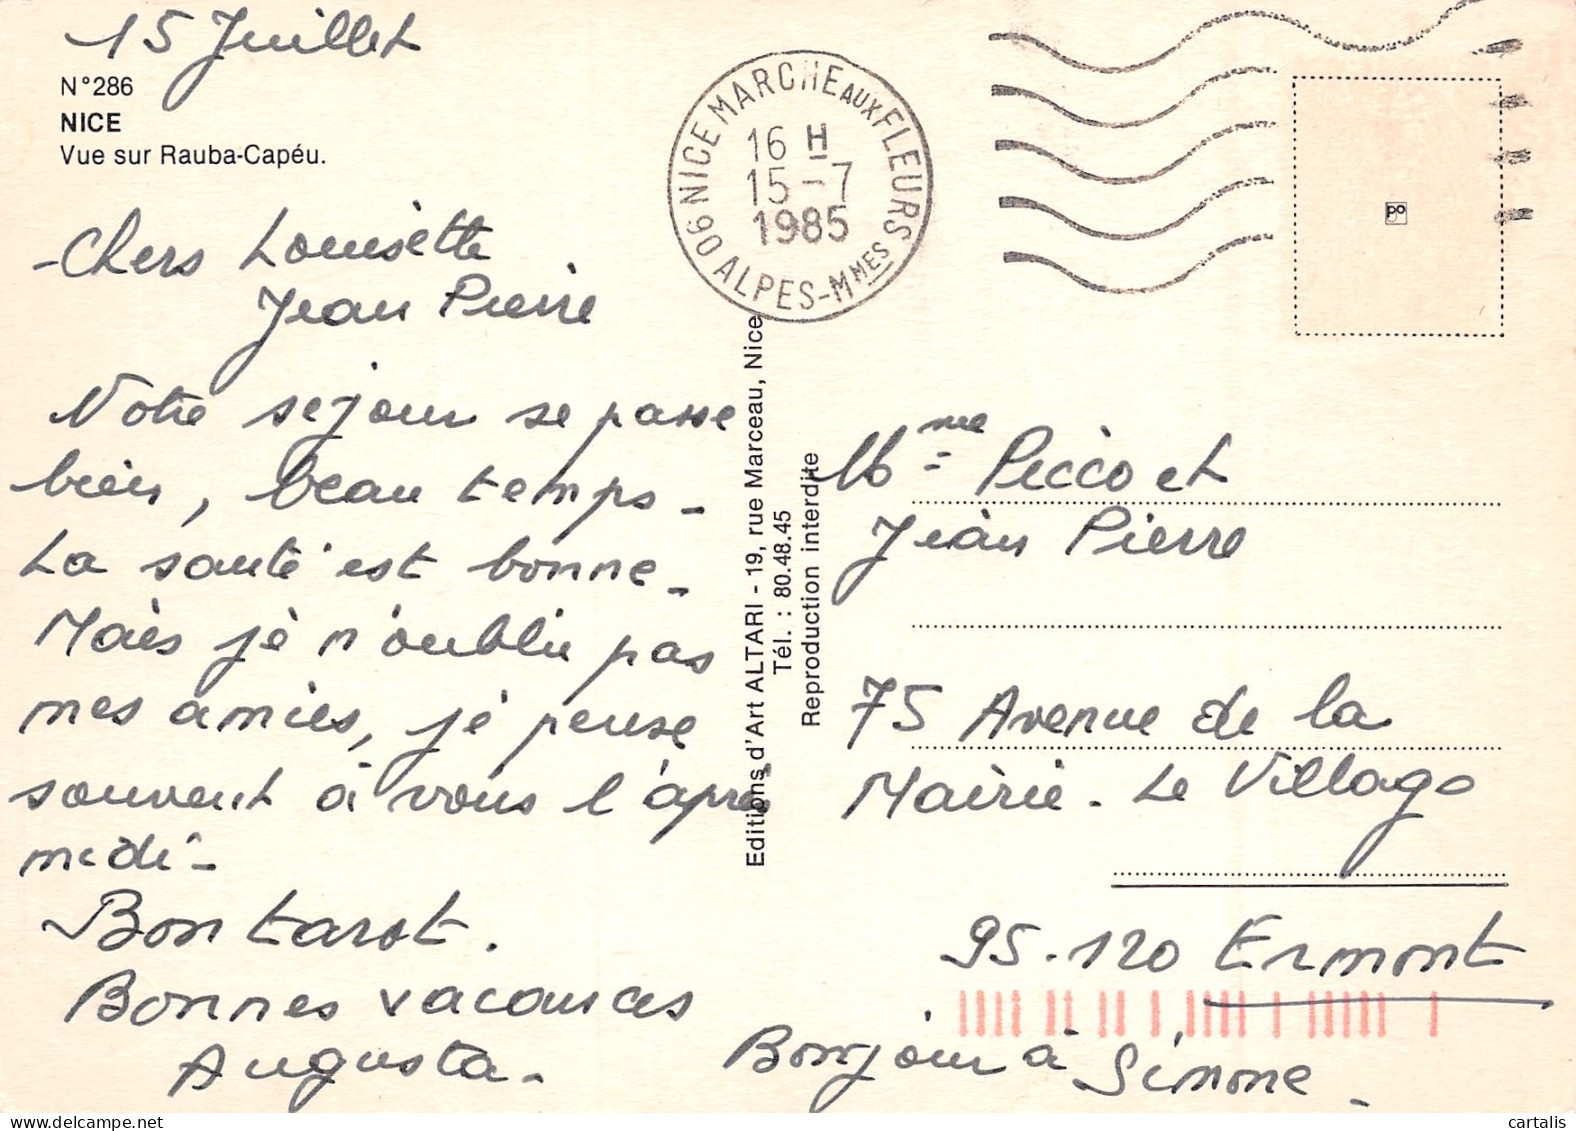 15 Juillet
N°286
NICE
Vue sur Rauba-Capéu.
- Chers Louisette
Jean Pierre
Notre séjour se passe
bien, beau temps -
La santé est bonne -
Mais je n'oublie pas
mes amies, je pense
souvent à vous l'après
midi -
Bon tarot.
Bonnes vacances
Augusta -
06 NICE MARCHE AUX FLEURS
ALPES-MMES
16 H
15 - 7
1985
Editions d'Art ALTARI - 19, rue Marceau, Nice
Tél. : 80.48.45
Reproduction interdite
po
Mme Picco et
Jean Pierre
75 Avenue de la
Mairie - Le Village
95.120 Ermont
Bonjour à Simone -
cartalis